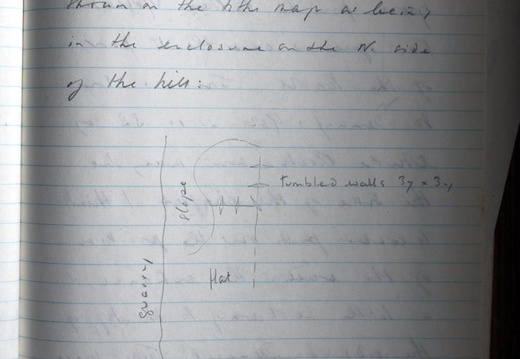 shown on the tithe map as being
in the enclosure on the N. side
of the hill:
tumbled walls 3y × 3y
slope
flat
quarry